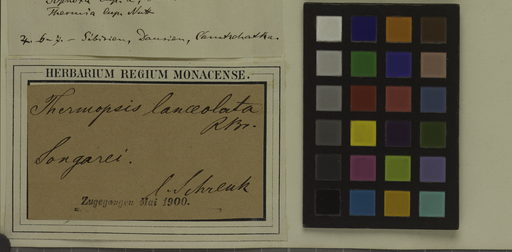 Thermia Cup. Nutt
♃. 6-7. – Sibirien, Daurien, Camtschatka.
HERBARIUM REGIUM MONACENSE.
Thermopsis lanceolata
R.Br.
Songarei.
C. Schrenk
Zugegangen Mai 1900.